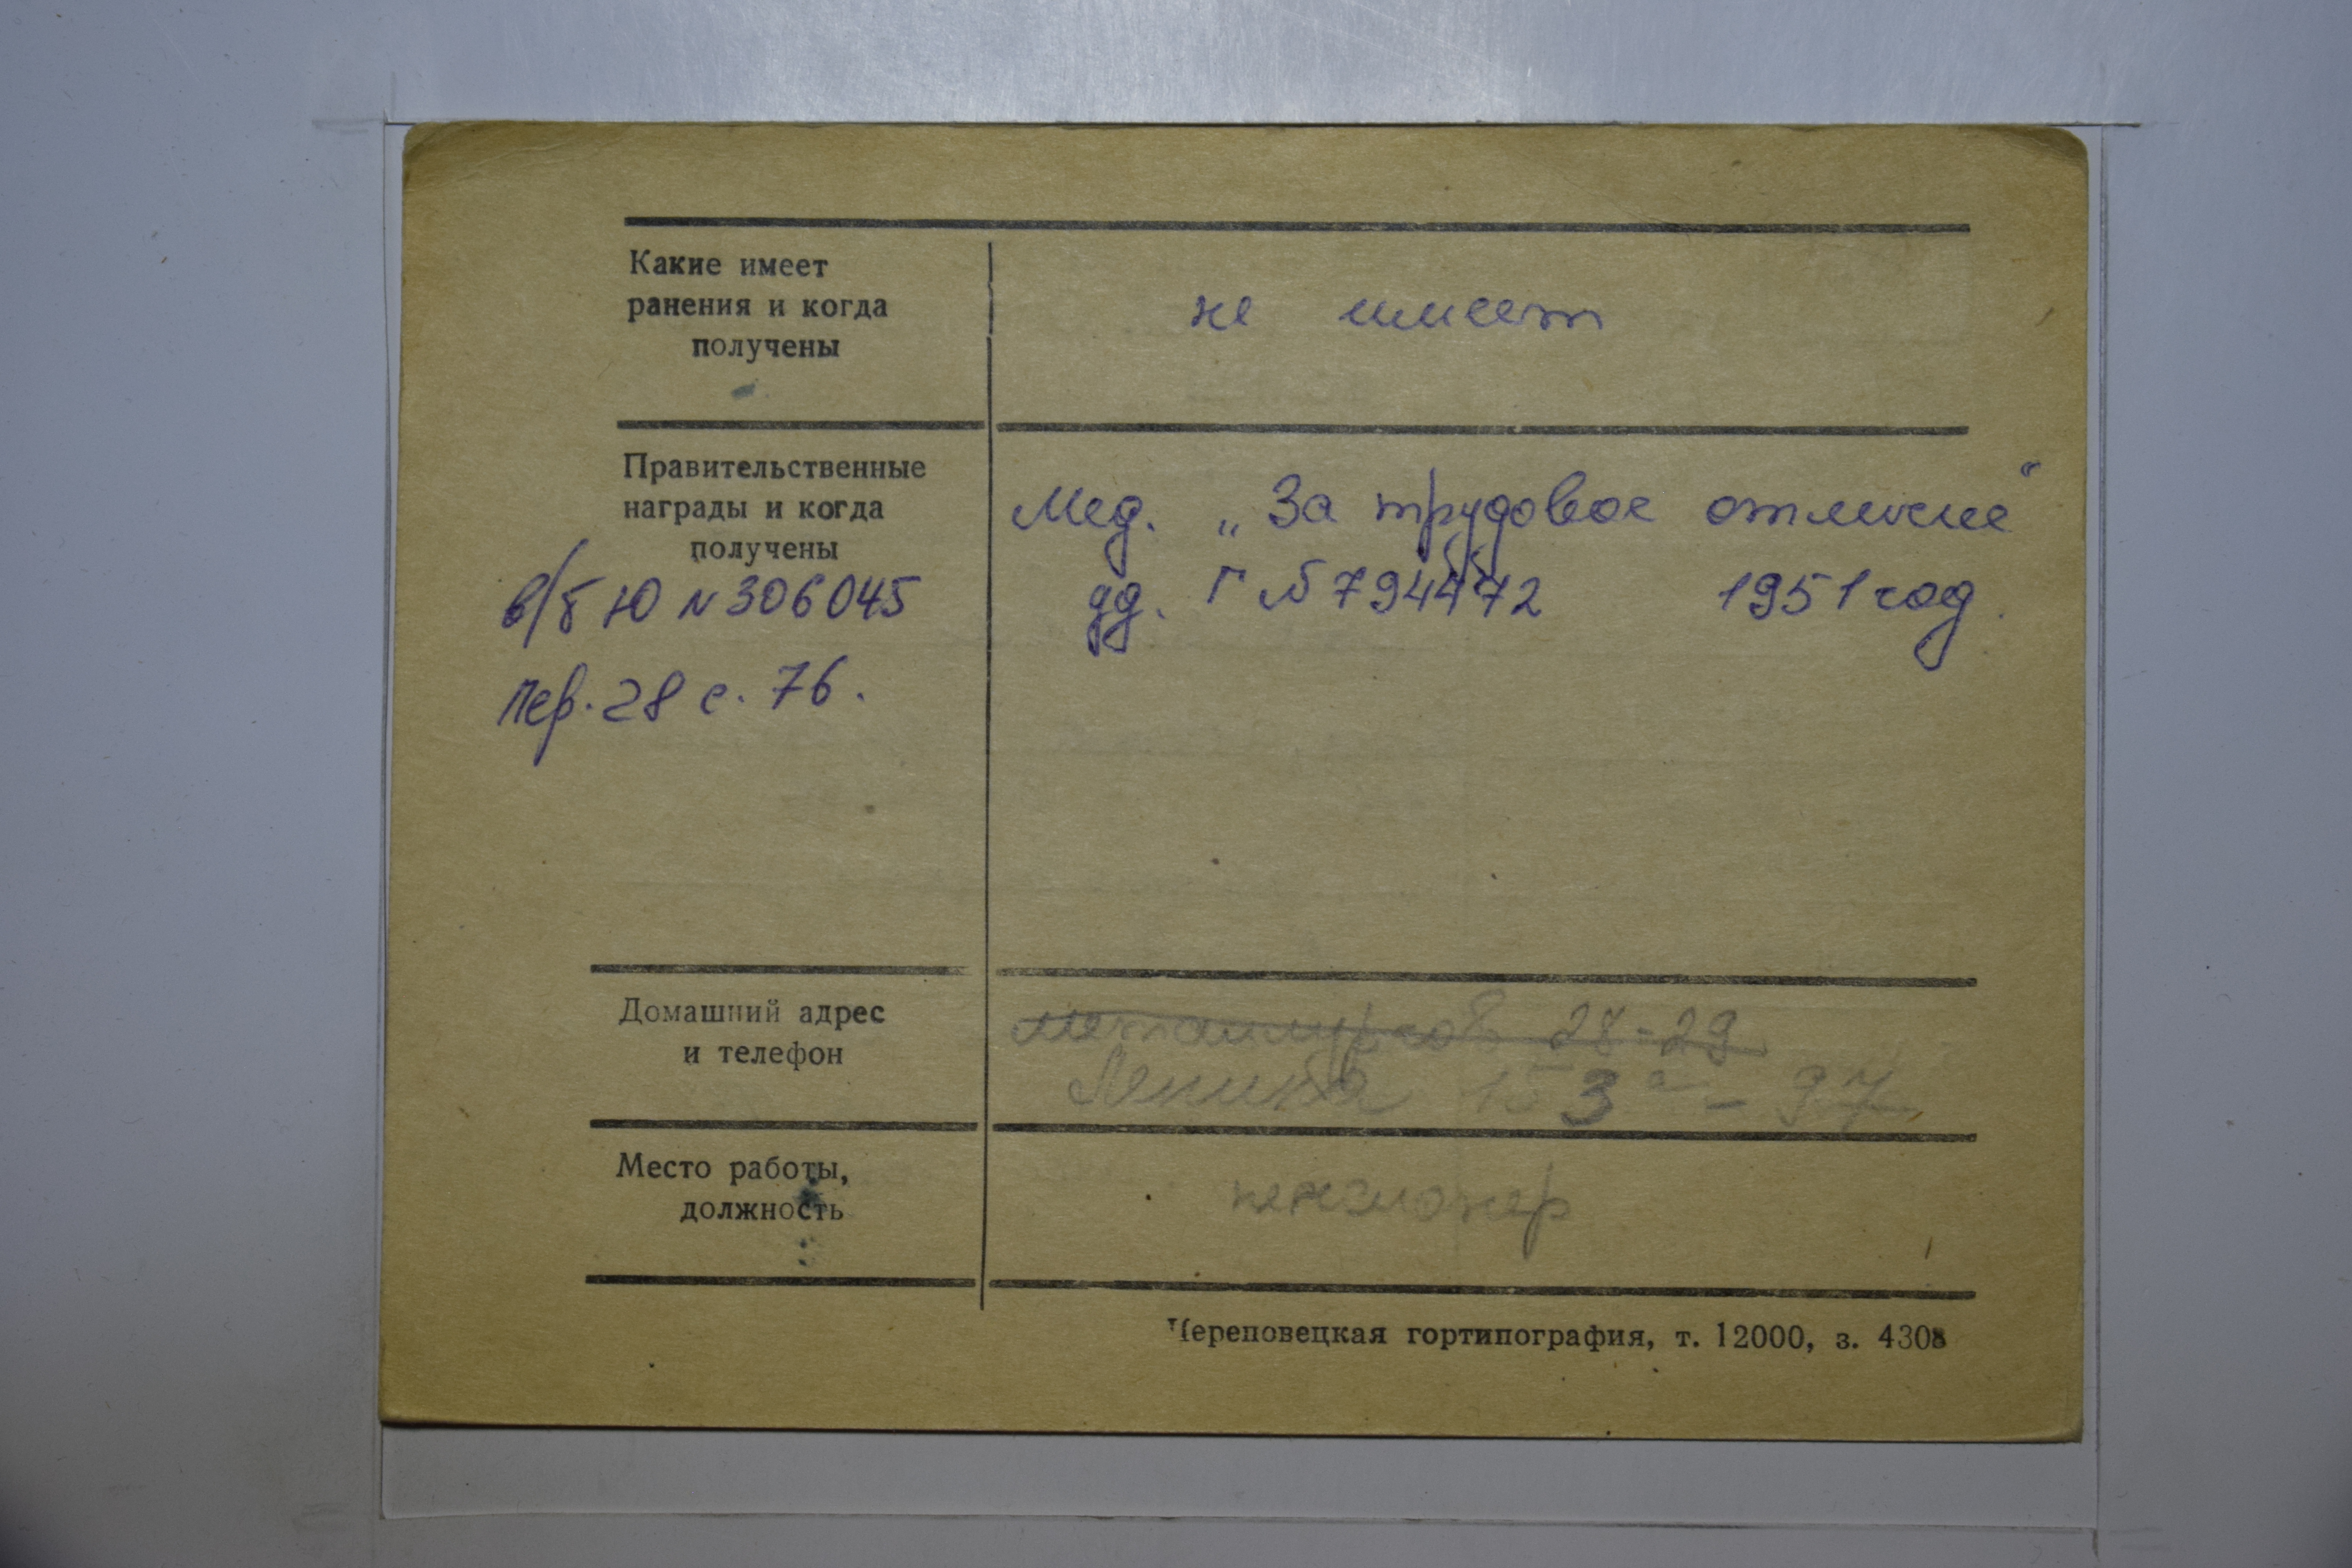 Какие имеет
ранения и когда
получены
не имеет
Правительственные
награды и когда
получены
Мед. „За трудовое отличие“
уд. Г № 794472 1951 год.
в/б Ю № 306045
пер. 28 с. 76.
Домашний адрес
и телефон
Металлургов 28-29
Ленина 153а - 97
Место работы,
должность
пенсионер
Череповецкая гортипография, т. 12000, з. 4308